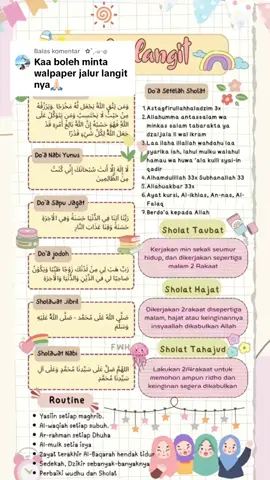 Balas komentar
Kaa boleh minta
walpaper jalur langit
nya🙏🏻
langit
وَمَن يَتَّقِ اللَّهَ يَجْعَل لَّهُ مَخْرَجًا وَيَرْزُقْهُ
مِنْ حَيْثُ لَا يَحْتَسِبُ وَمَن يَتَوَكَّلْ عَلَى
اللَّهِ فَهُوَ حَسْبُهُ إِنَّ اللَّهَ بَالِغُ أَمْرِهِ قَدْ
جَعَلَ اللَّهُ لِكُلِّ شَيْءٍ قَدْرًا
Do'a Nabi Yunus
لَا إِلَهَ إِلَّا أَنْتَ سُبْحَانَكَ إِنِّي كُنْتُ
مِنَ الظَّالِمِينَ
Do'a Sapu Jagat
رَبَّنَا آتِنَا فِي الدُّنْيَا حَسَنَةً وَفِي الْآخِرَةِ
حَسَنَةً وَقِنَا عَذَابَ النَّارِ
Do'a jodoh
Sholawat Jibril
صَلَّى اللَّهُ عَلَى مُحَمَّدٍ
Sholawat Nabi
اللَّهُمَّ صَلِّ عَلَى سَيِّدِنَا مُحَمَّدٍ وَعَلَى آلِ
سَيِّدِنَا مُحَمَّدٍ
Do'a Setelah Sholat
1.Astagfirullahhaladzim 3x
2.Allahumma antassalam wa
minkas salam tabarakta ya
dzaljala li wal ikram
3.Laa ilaha illallah wahdahu laa
syarika lah, lahul mulku walahul
hamau wa huwa 'ala kulli syai-in
qadir
4.Alhamdulillah 33x Subhanallah 33x
5.Allahuakbar 33x
6.Ayat kursi, Al-ikhlas, An-nas, Al-
Falaq
7.Berdo'a kepada Allah
Sholat Taubat
Kerjakan min sekali seumur
hidup, dan dikerjakan sepertiga
malam 2 Rakaat
Sholat Hajat
Dikerjakan 2rakaat disepertiga
malam, hajat atau keinginannya
insyaallah dikabulkan Allah
Sholat Tahajud
Lakukan 2/4rakaat untuk
memohon ampun ridho dan
keinginan segera dikabulkan
FWH
Routine
Yasiin setiap maghrib.
Al-waqiah setiap subuh.
Ar-rahman setiap Dhuha
Al-mulk setia isya
2ayat terakhir Al-Baqarah hendak tidur
Sedekah, Dzikir sebanyak-banyaknya
Perbaiki wudhu dan Sholat